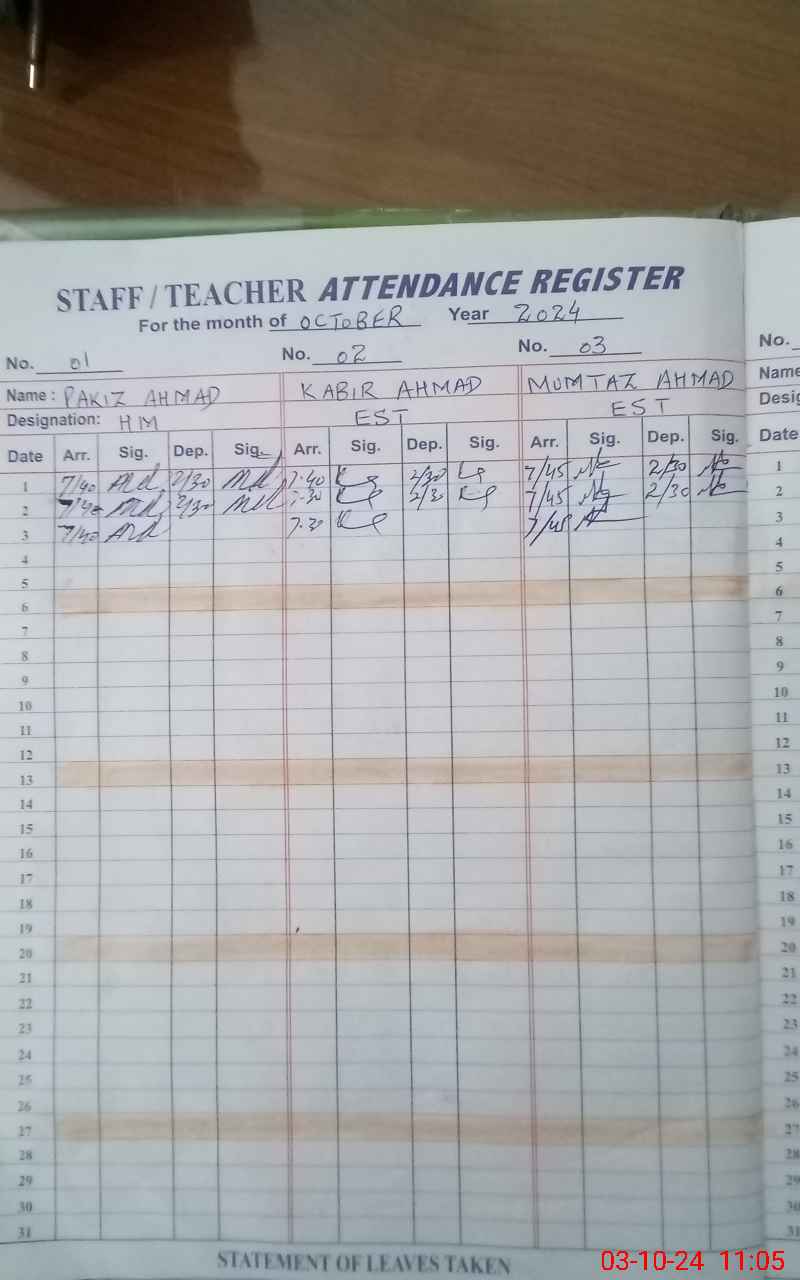 STAFF / TEACHER ATTENDANCE REGISTER
For the month of OCTOBER Year 2024
No. 01 No. 02 No. 03 No.
Name : PAKIZ AHMAD KABIR AHMAD MUMTAZ AHMAD Name
Designation: HM EST EST Desig
Date Arr. Sig. Dep. Sig. Arr. Sig. Dep. Sig. Arr. Sig. Dep. Sig. Date
1 7/40 2/30 7.40 2/30 7/45 2/30 1
2 7/40 2/30 7.30 2/30 7/45 2/30 2
3 7/40 7.30 7/45 3
4 4
5 5
6 6
7 7
8 8
9 9
10 10
11 11
12 12
13 13
14 14
15 15
16 16
17 17
18 18
19 19
20 20
21 21
22 22
23 23
24 24
25 25
26 26
27 27
28 28
29 29
30 30
31 31
STATEMENT OF LEAVES TAKEN
03-10-24 11:05